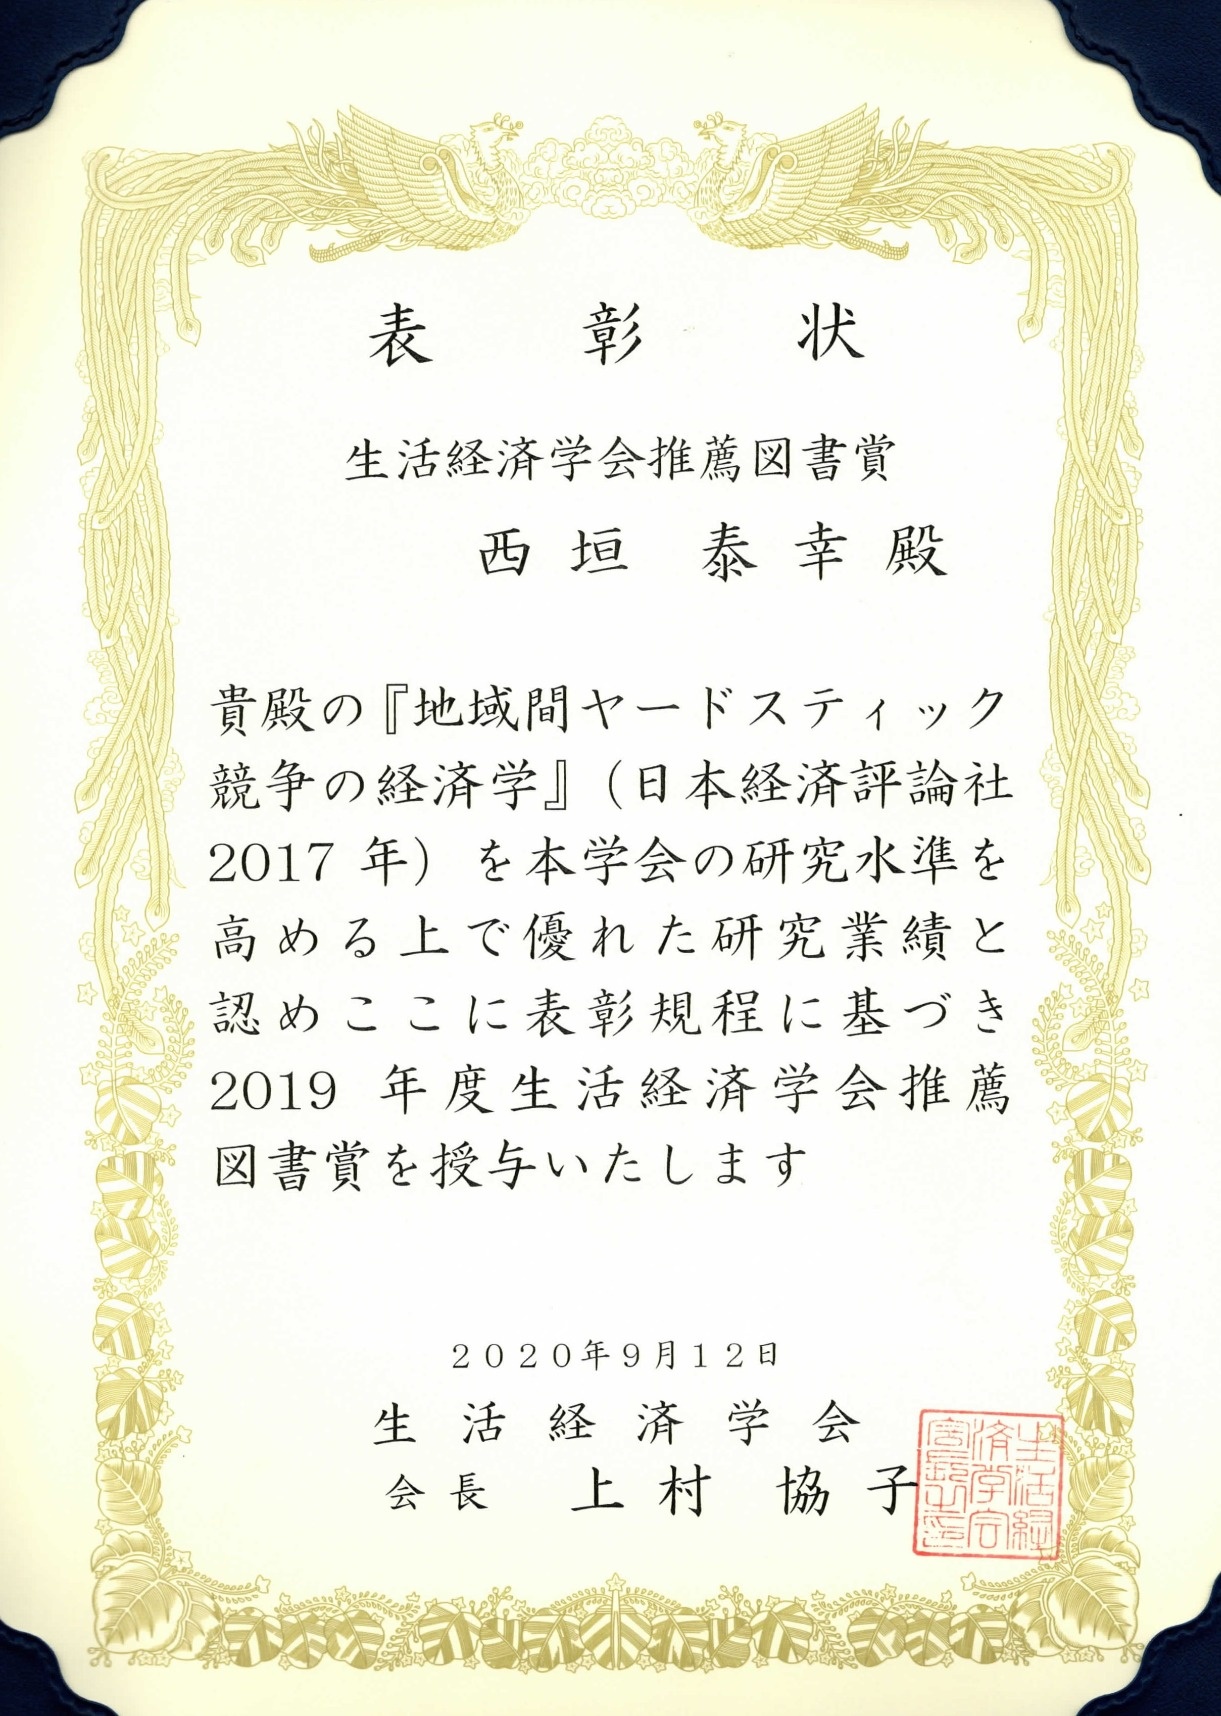 表彰状
生活経済学会推薦図書賞
西垣 泰幸殿
貴殿の『地域間ヤードスティック
競争の経済学』（日本経済評論社
2017 年）を本学会の研究水準を
高める上で優れた研究業績と
認めここに表彰規程に基づき
2019 年度生活経済学会推薦
図書賞を授与いたします
２０２０年９月１２日
生活経済学会
会長 上村 協子
生活経
済学会
会長之印